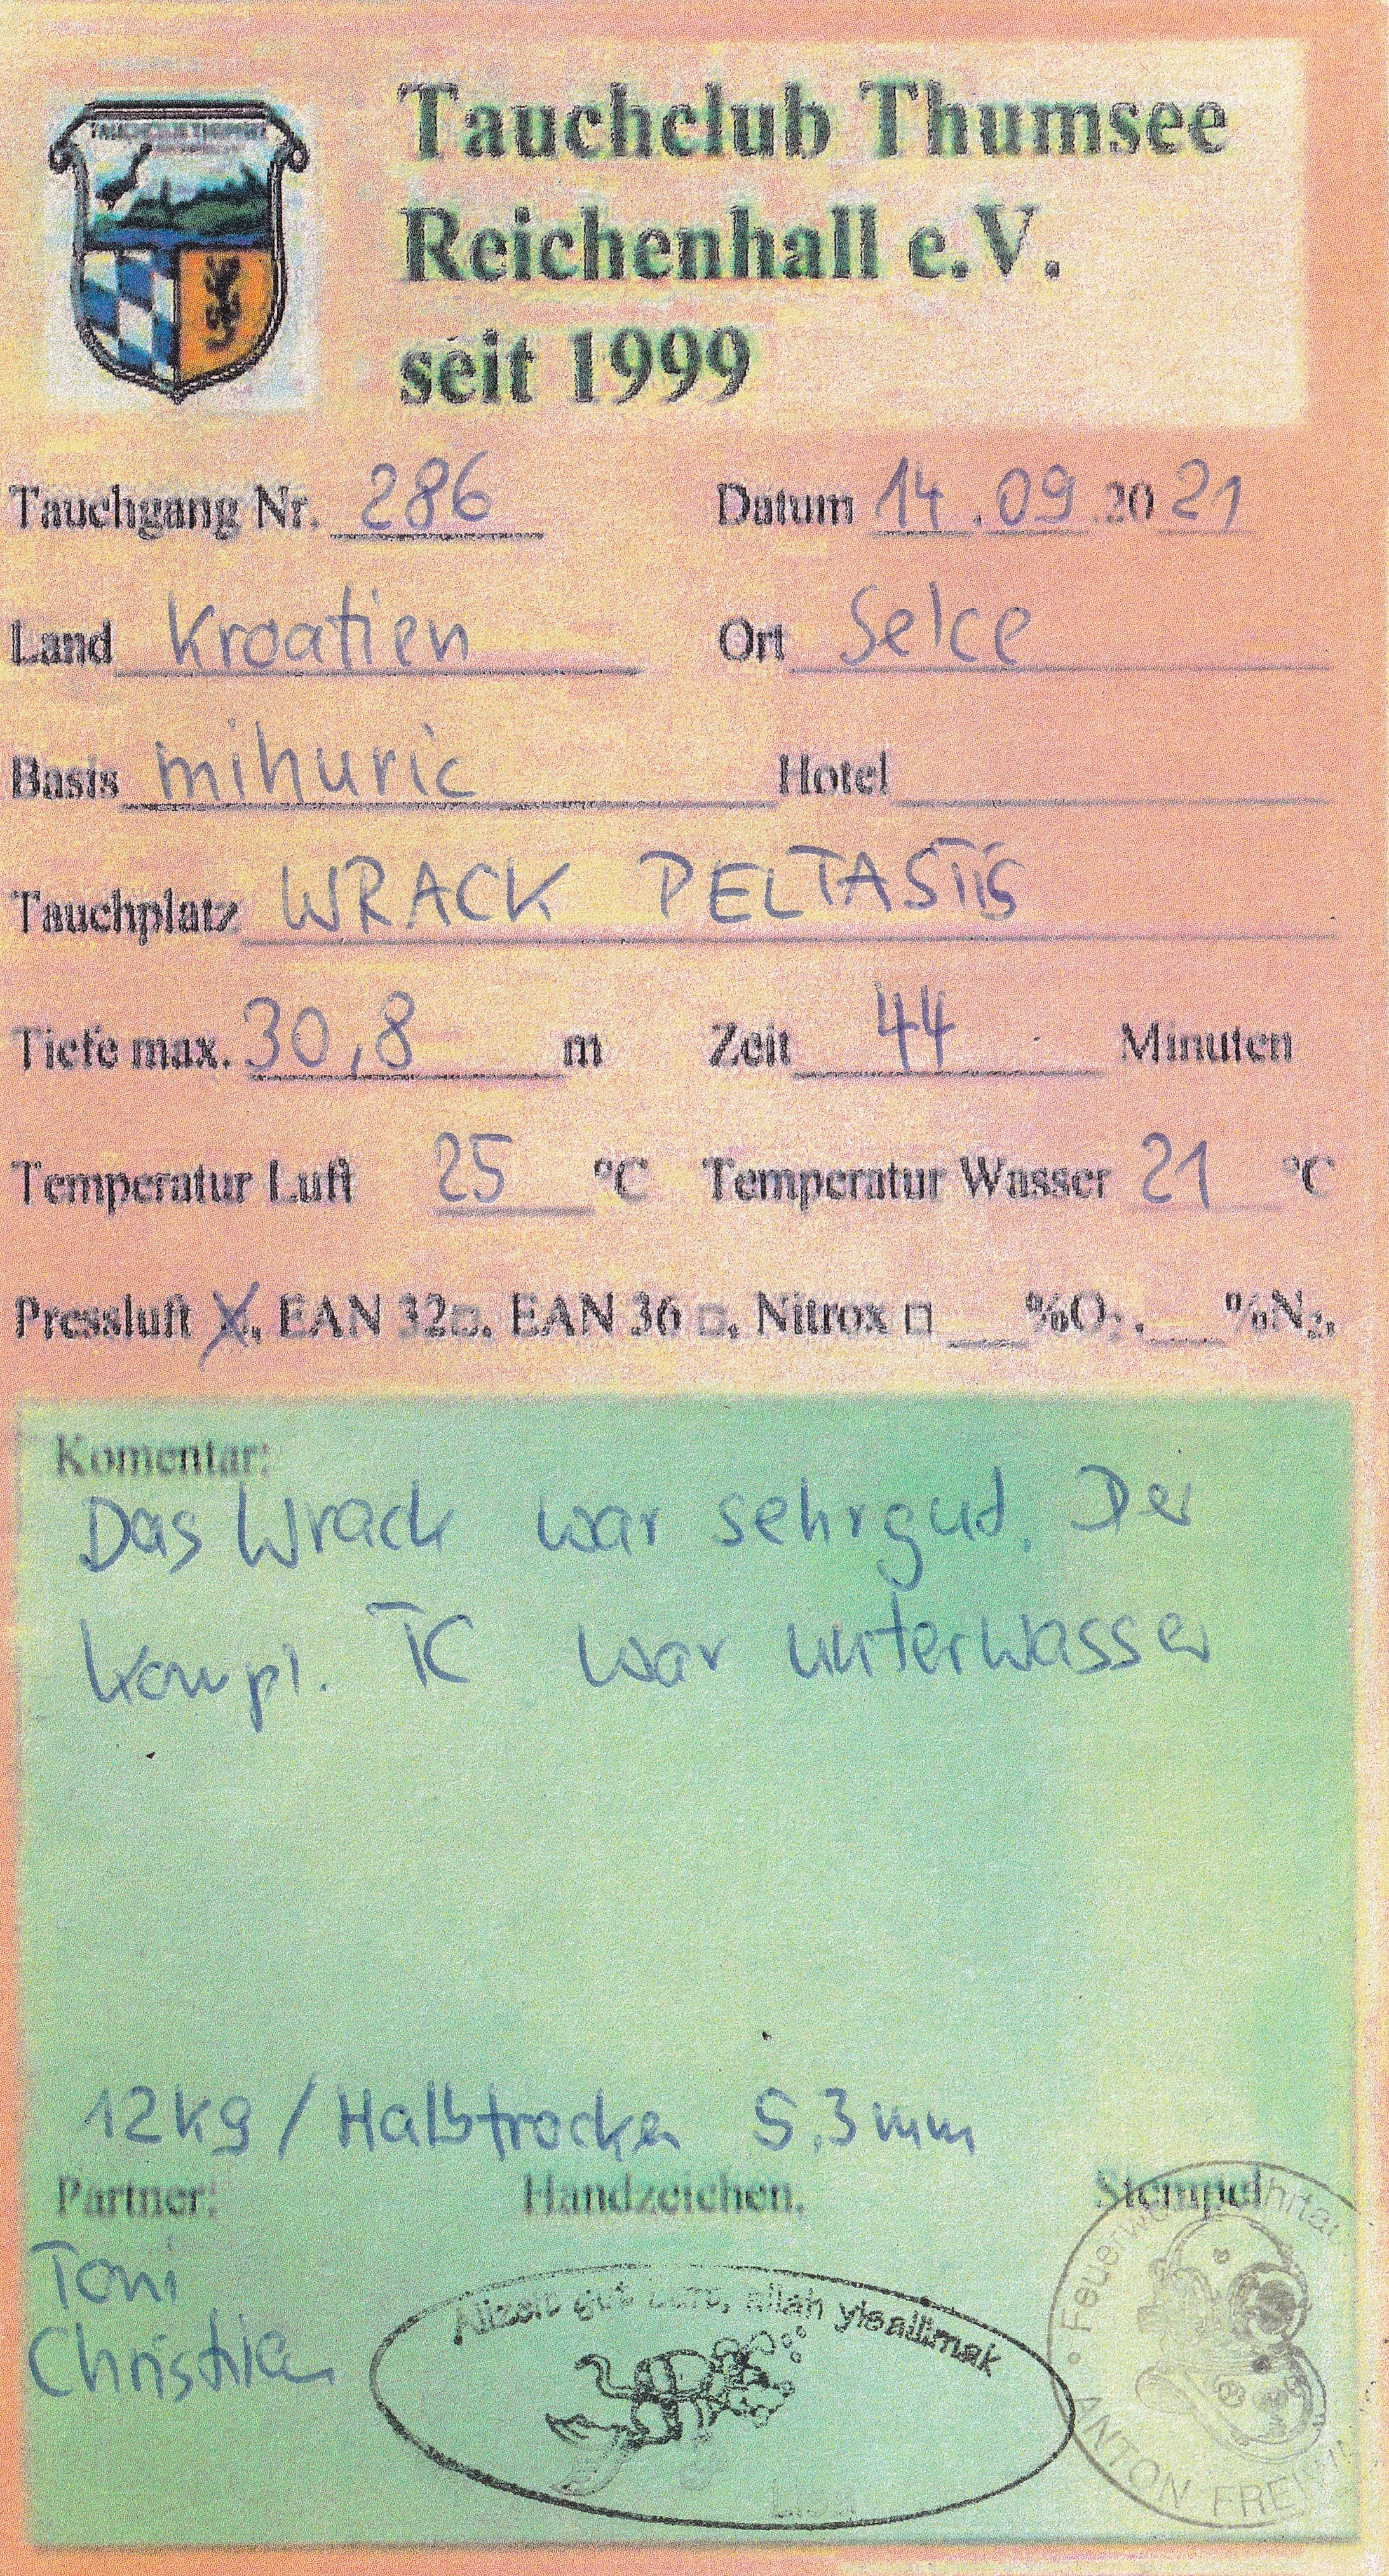 TAUCHCLUB THUMSEE
Tauchclub Thumsee
Reichenhall e.V.
seit 1999
Tauchgang Nr. 286 Datum 14.09.2021
Land Kroatien Ort Selce
Basis mihuric Hotel
Tauchplatz WRACK PELTASTIS
Tiefe max. 30,8 m Zeit 44 Minuten
Temperatur Luft 25 °C Temperatur Wasser 21 °C
Pressluft X, EAN 32□, EAN 36 □, Nitrox □ ___%O₂, ___%N₂,
Komentar:
Das Wrack war sehrgut. Der
kompl. TC war unterwasser
12kg / Halbtrocken 5,3mm
Partner: Handzeichen, Stempel
Toni
Christian
Allzeit gut Luft, allah yisallimak
ANTON